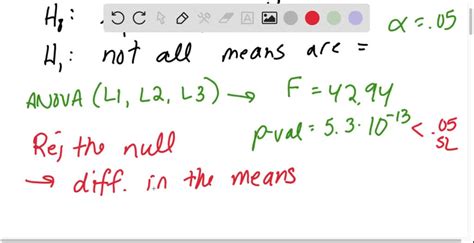 H₀:
α = .05
H₁: not all means are =
ANOVA (L1, L2, L3) → F = 42.94
p-val = 5.3·10⁻¹³ < .05
SL
Rej the null
→ diff. in the means